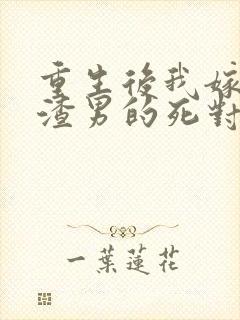 重生後我嫁
渣男的死對
一葉蓮花